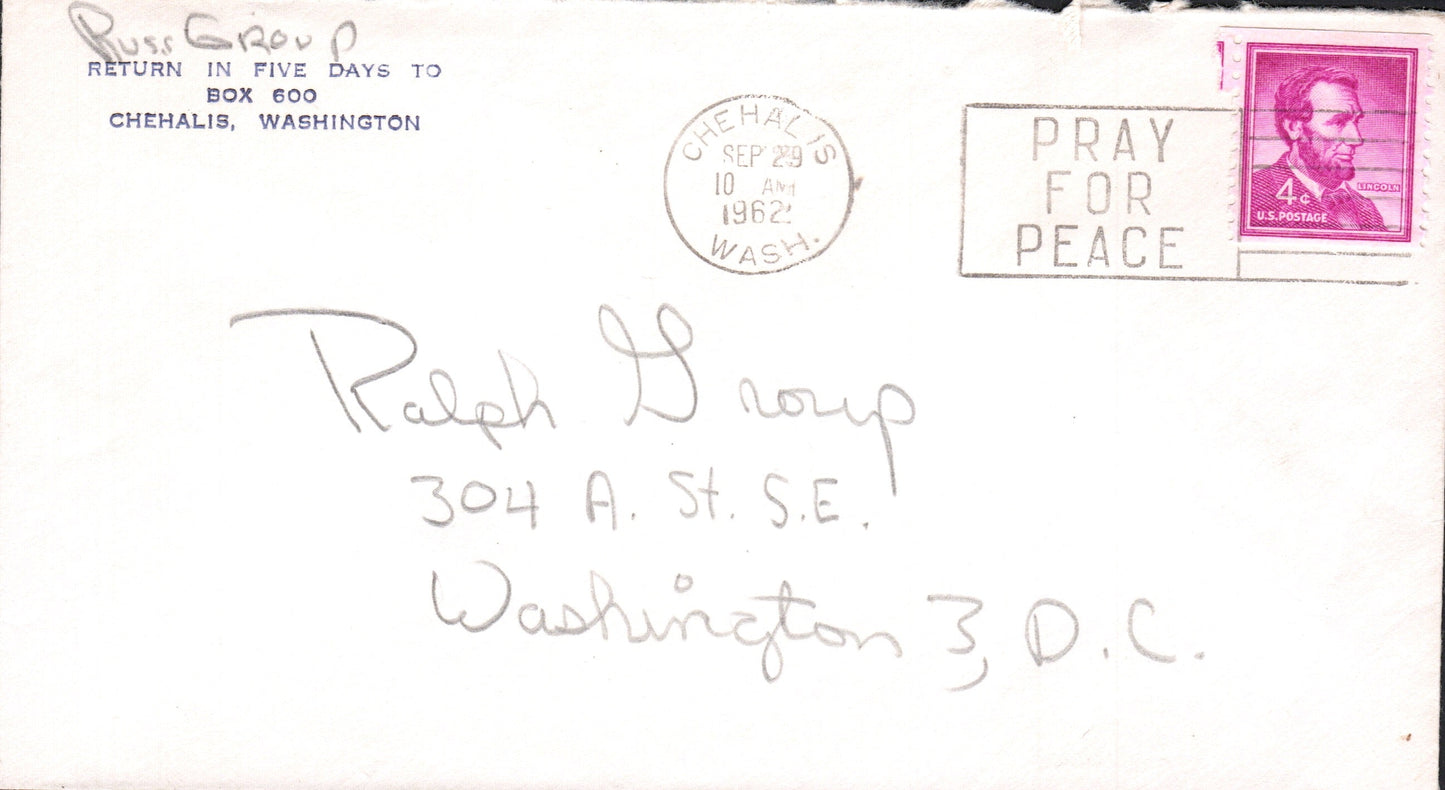 Russ Group
RETURN IN FIVE DAYS TO
BOX 600
CHEHALIS, WASHINGTON
CHEHALIS
SEP 29
10 AM
1962
WASH.
PRAY
FOR
PEACE
LINCOLN
4¢
U.S. POSTAGE
Ralph Group
304 A. St. S.E.
Washington 3, D.C.